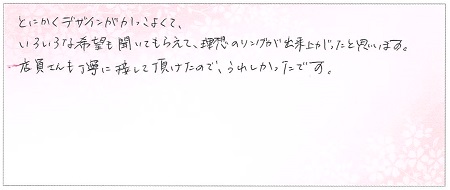 とにかくデザインがかっこよくて、
いろいろな希望も聞いてもらえて、理想のリングが出来上がったと思います。
店員さんも丁寧に接して頂けたので、うれしかったです。